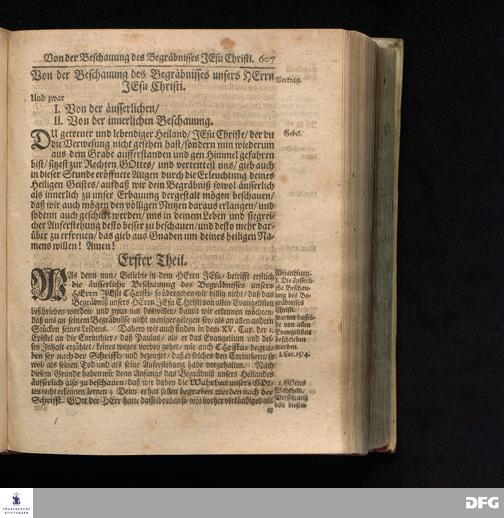 Von der Beschauung des Begräbnisses JEsu Christi. 607
Von der Beschauung des Begräbnisses unsers HErrn
JEsu Christi.
Vortrag.
Und zwar
I. Von der äusserlichen/
II. Von der innerlichen Beschauung.
DU getreuer und lebendiger Heiland/ JEsu Christe/ der du
Gebet.
die Verwesung nicht gesehen hast/ sondern nun wiederum
aus dem Grabe aufferstanden und gen Himmel gefahren
bist/ sitzest zur Rechten GOttes/ und vertrittest uns/ gieb auch
in dieser Stunde eröffnete Augen durch die Erleuchtung deines
Heiligen Geistes/ auf daß wir dein Begräbniß sowol äusserlich
als innerlich zu unser Erbauung dergestalt mögen beschauen/
daß wir auch mögen den völligen Nutzen daraus erlangen/ und
sodenn auch geschickt werden/ uns in deinem Leben und siegrei-
cher Auferstehung desto besser zu beschauen/ und desto mehr dar-
über zu erfreuen/ das gieb aus Gnaden um deines heiligen Na-
mens willen! Amen!
Erster Theil.
WAs denn nun/ Geliebte in dem HErrn JEsu/ betrifft erstlich
die äusserliche Beschauung des Begräbnisses unsers
HErrn JEsu Christi/ so übergehen wir billig nicht/ daß das
Begräbniß unsers HErrn JEsu Christi von allen Evangelisten
beschrieben worden/ und zwar
daß uns an seinem Begräbniß nicht weniger gelegen sey/ als an allen andern
Stücken seines Leidens. Dahero wir auch finden in dem XV. Cap. der 1.
Epistel an die Corinthier/ daß Paulus/ als er das Evangelium und des-
sen Inhalt erzählet/ seines weges vorbey gehet/ wie auch Christus begra-
ben sey nach der Schrifft/ und bezeuget/ daß er solches den Corinthern so-
wol als seinen Tod und als seine Auferstehung habe vorgehalten. Nach
diesem Grunde haben wir denn Anfangs das Begräbniß unsers Heilandes
äusserlich also zu beschauen/ daß wir dabey die Wahrheit unsers GOt-
tes recht erkennen lernen
Schrifft. GOtt der HErr hatte dasselbe
Abhandlung.
I. Die äusserli-
che Beschau-
ung des Be-
gräbnisses
Christi.
warum dasselbe
von allen
Evangelisten
beschrieben
worden.
1. Cor. 15/4.
1. GOttes
DFG